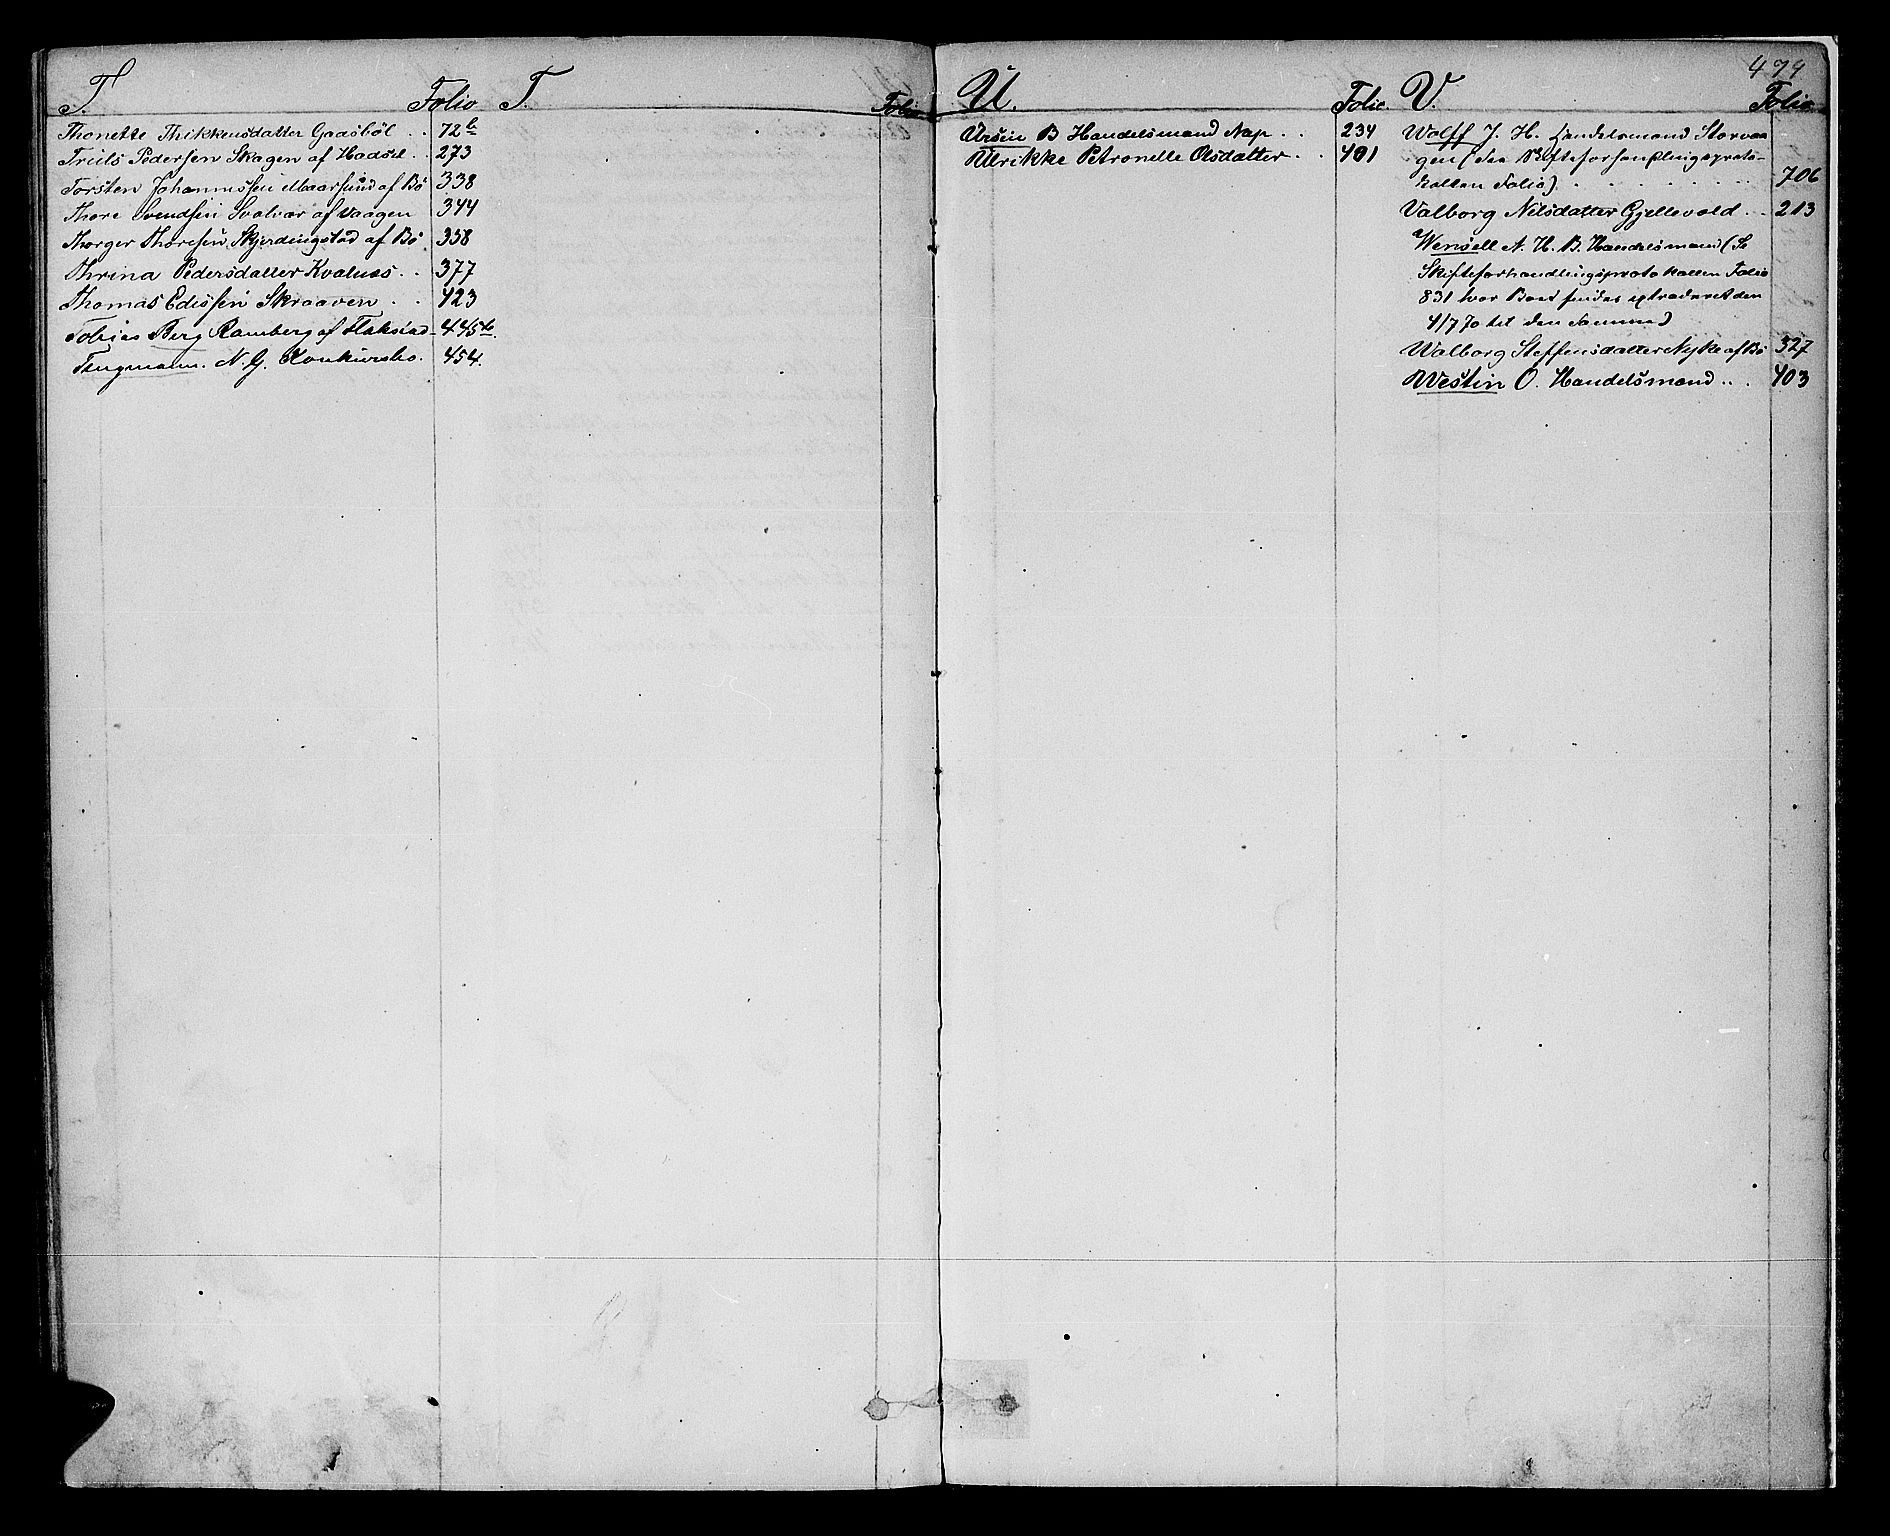 T. Folio
Thonette Thikkensdatter Gaasböl . . 72b
Truls Pedersen Skagen af Hadsel . . 273
Torsten Johannissen Maarsund af Bö 338
Thore Svendsen Svolvær af Vaagen 344
Thorger Thoresen Skjerdingstad af Bö 358
Thrina Pedersdatter Kvalnæs . . 377
Thomas Edissen Skraaven . . 423
Tobias Berg Ramberg af Flakstad 445b.
Tengmann. N. G. Konkursbo. 454.
T. Folio
U. Folio
Ursin B Handelsmand Nap . . 234
Ulrikke Petronelle Olsdatter . . 401
479
V. Folio
Wolff J. H. Handelsmand Storvaa
gen (See Skifteforhandlingsproto-
kollen Folio) . . . . . . . 706
Valborg Nilsdatter Gjellevold . . 213
Wensell N. H. B. Handelsmand (Se
Skifteforhandlingsprotokollen Folio
831 hvor Boet findes extraderet den
4/7 70 til den Samme)
Walborg Steffensdatter Nyke af Bö 327
Westin O. Handelsmand . . . 403